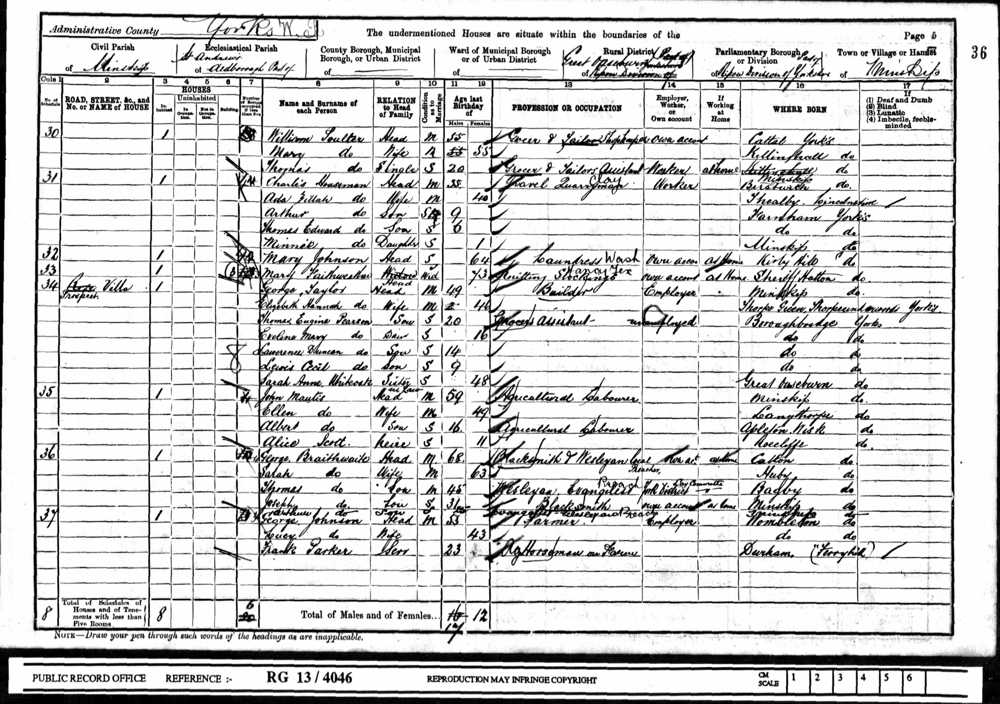 Administrative County Yorks W.R
The undermentioned Houses are situate within the boundaries of the
Page 5
36
Civil Parish
of Minskip
Ecclesiastical Parish
St Andrews
of Aldborough Part of
County Borough, Municipal
Borough, or Urban District
of
Ward of Municipal Borough
or of Urban District
of
Rural District
Part of
of
Parliamentary Borough
or Division
of Ripon Division of Yorkshire
Town or Village or Hamlet
of Minskip
Cols 1 2 3 4 5 6 7 8 9 10 11 12 13 14 15 16 17
No. of Schedule
ROAD, STREET, &c., and No. or NAME of HOUSE
HOUSES
Inhabited
Uninhabited
In Occupation
Not in Occupation
Building
Name and Surname of each Person
RELATION to Head of Family
Condition as to Marriage
Age last Birthday of
Males
Females
PROFESSION OR OCCUPATION
Employer, Worker, or Own account
If Working at Home
WHERE BORN
If
(1) Deaf and Dumb
(2) Blind
(3) Lunatic
(4) Imbecile, feeble-minded
30 1 William Head M 55 Grocer & Tailor own account Cattal Yorks
Mary do Wife 55 55 Killinghall do
Thomas do Single S 20 Grocer & Tailors Assistant Worker at home Minskip do
31 1 Charles Head M 35 Clay Gravel Quarryman Worker do
Ada Zillah do Wife M 40 Thealby Lincolnshire
Arthur do Son S 9 Farnham Yorks
Thomas Edward do Son S 6 do do
Minnie do Daughter S 1 Minskip do
32 1 Mary Johnson Head S 64 Laundress Wash own account at home Kirby Hill do
33 1 Mary Widow Head Wid 73 Knitting Stockings own account at Home Sheriff Hutton do
34 Prospect Villa 1 George Taylor Head M 49 Builder Employer Minskip do
Elizabeth Hannah do Wife M 46 Thorpe Green, Thorpe Underwoods Yorks
Thomas Eugene Pearson Son S 20 Grocers Assistant Boroughbridge Yorks
Eveline Mary do Daur S 16 do do
Lawrence Duncan do Son S 14 do do
Lewis Cecil do Son S 9 do do
Sarah Anne Sister in law S 48 Great Ouseburn do
35 1 John Head M 59 Agricultural Labourer Minskip do
Ellen do Wife M 49 Langthorpe do
Albert do Son S 16 Agricultural Labourer Appleton Wisk do
Alice Scott Neice S 11 Roecliffe do
36 1 George Braithwaite Head M 68 Blacksmith & Wesleyan Local Preacher own at home Catton do
Sarah do Wife M 63 Huby do
Thomas do Son M 45 Wesleyan Evangelist York District Bagby do
Joseph do Son S 31 Blacksmith own account at home Minskip do
37 1 George Johnson Head M 53 Farmer Employer Wombleton do
Lucy do Wife 43 do do
Frank Parker Serv 23 Horseman on Farm Durham (Ferryhill)
8 Total of Schedules of Houses and of Tenements with less than Five Rooms 8 6
Total of Males and of Females... 16 17 12
NOTE—Draw your pen through such words of the headings as are inapplicable.
PUBLIC RECORD OFFICE REFERENCE :- RG 13 / 4046 REPRODUCTION MAY INFRINGE COPYRIGHT
CM SCALE 1 2 3 4 5 6